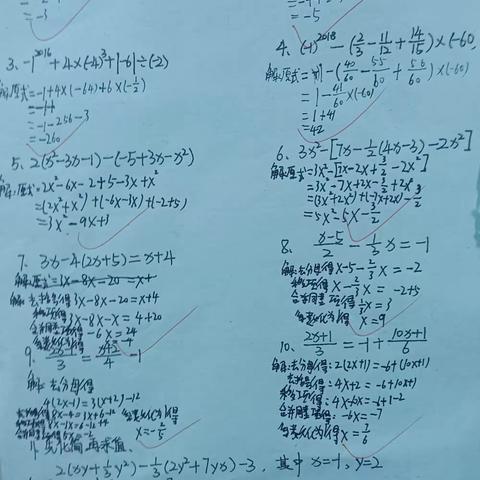 = -3
= -5
3、-1^2016 + 4×(-4)³ + |-6| ÷ (-2)
解:原式 = -1+4×(-64)+6×(-1/2)
= -1-256-3
= -260
4、(-1)^2018 - (2/3 - 11/12 + 14/15)×(-60)
解:原式 = 1-(40/60 - 55/60 + 56/60)×(-60)
= 1 - 41/60 ×(-60)
= 1+41
= 42
5、2(x²-3x-1)-(-5+3x-x²)
解:原式 = 2x²-6x-2+5-3x+x²
= (2x²+x²)+(-6x-3x)+(-2+5)
= 3x²-9x+3
6、3x²-[7x-1/2(4x-3)-2x²]
解:原式 = 3x²-[7x-2x+3/2-2x²]
= 3x²-7x+2x-3/2+2x²
= (3x²+2x²)+(-7x+2x)-3/2
= 5x²-5x-3/2
7、3x-4(2x+5)=x+4
解:去括号得 3x-8x-20=x+4
移项得 3x-8x-x=4+20
合并同类项得 -6x=24
系数化为1得 x=-4
8、(x-5)/2 - 1/3 x = -1
解:去分母得 x-5-2/3 x = -2
移项得 x-2/3 x = -2+5
合并同类项得 1/3 x = 3
系数化为1得 x=9
9、(2x-1)/3 = (x+2)/4 - 1
解:去分母得
4(2x-1)=3(x+2)-12
去括号得 8x-4=3x+6-12
系数化为1得
x=-2/5
10、(2x+1)/3 = -1 + (10x+1)/6
解:去分母得:2(2x+1)=-6+(10x+1)
去括号得:4x+2=-6+10x+1
移项得:4x-10x=-6+1-2
合并同类项得:-6x=-7
系数化为1得 x=7/6
11、先化简,再求值、
2(xy+1/3y²)-1/3(2y²+7yx)-3,其中x=-1,y=2